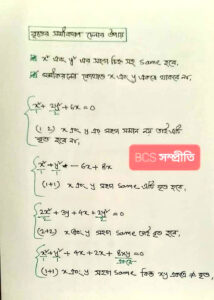 বৃত্তের সমীকরণ চেনার উপায়
x² এবং y² এর সহগ চিহ্ন সহ same হবে,
সমীকরণের কোথাও x এবং y একসাথে থাকবে না,
x² + 2y² + 6x = 0
(1≠2) x এবং y এর সহগ সমান নয় তাই এটি
বৃত্ত হবে না,
x² + y² - 6x + 8x
(1=1) x এবং y সহগ same এটি বৃত্ত হবে,
BCS সম্প্রীতি
2x² + 3y + 4x + 2y² = 0
(2=2) x এবং y সহগ same তাই বৃত্ত হবে,
x² + y² + 4x + 2x + 8xy = 0
(1=1) x এবং y সহগ same কিন্তু xy একসাথে ≠ বৃত্ত,